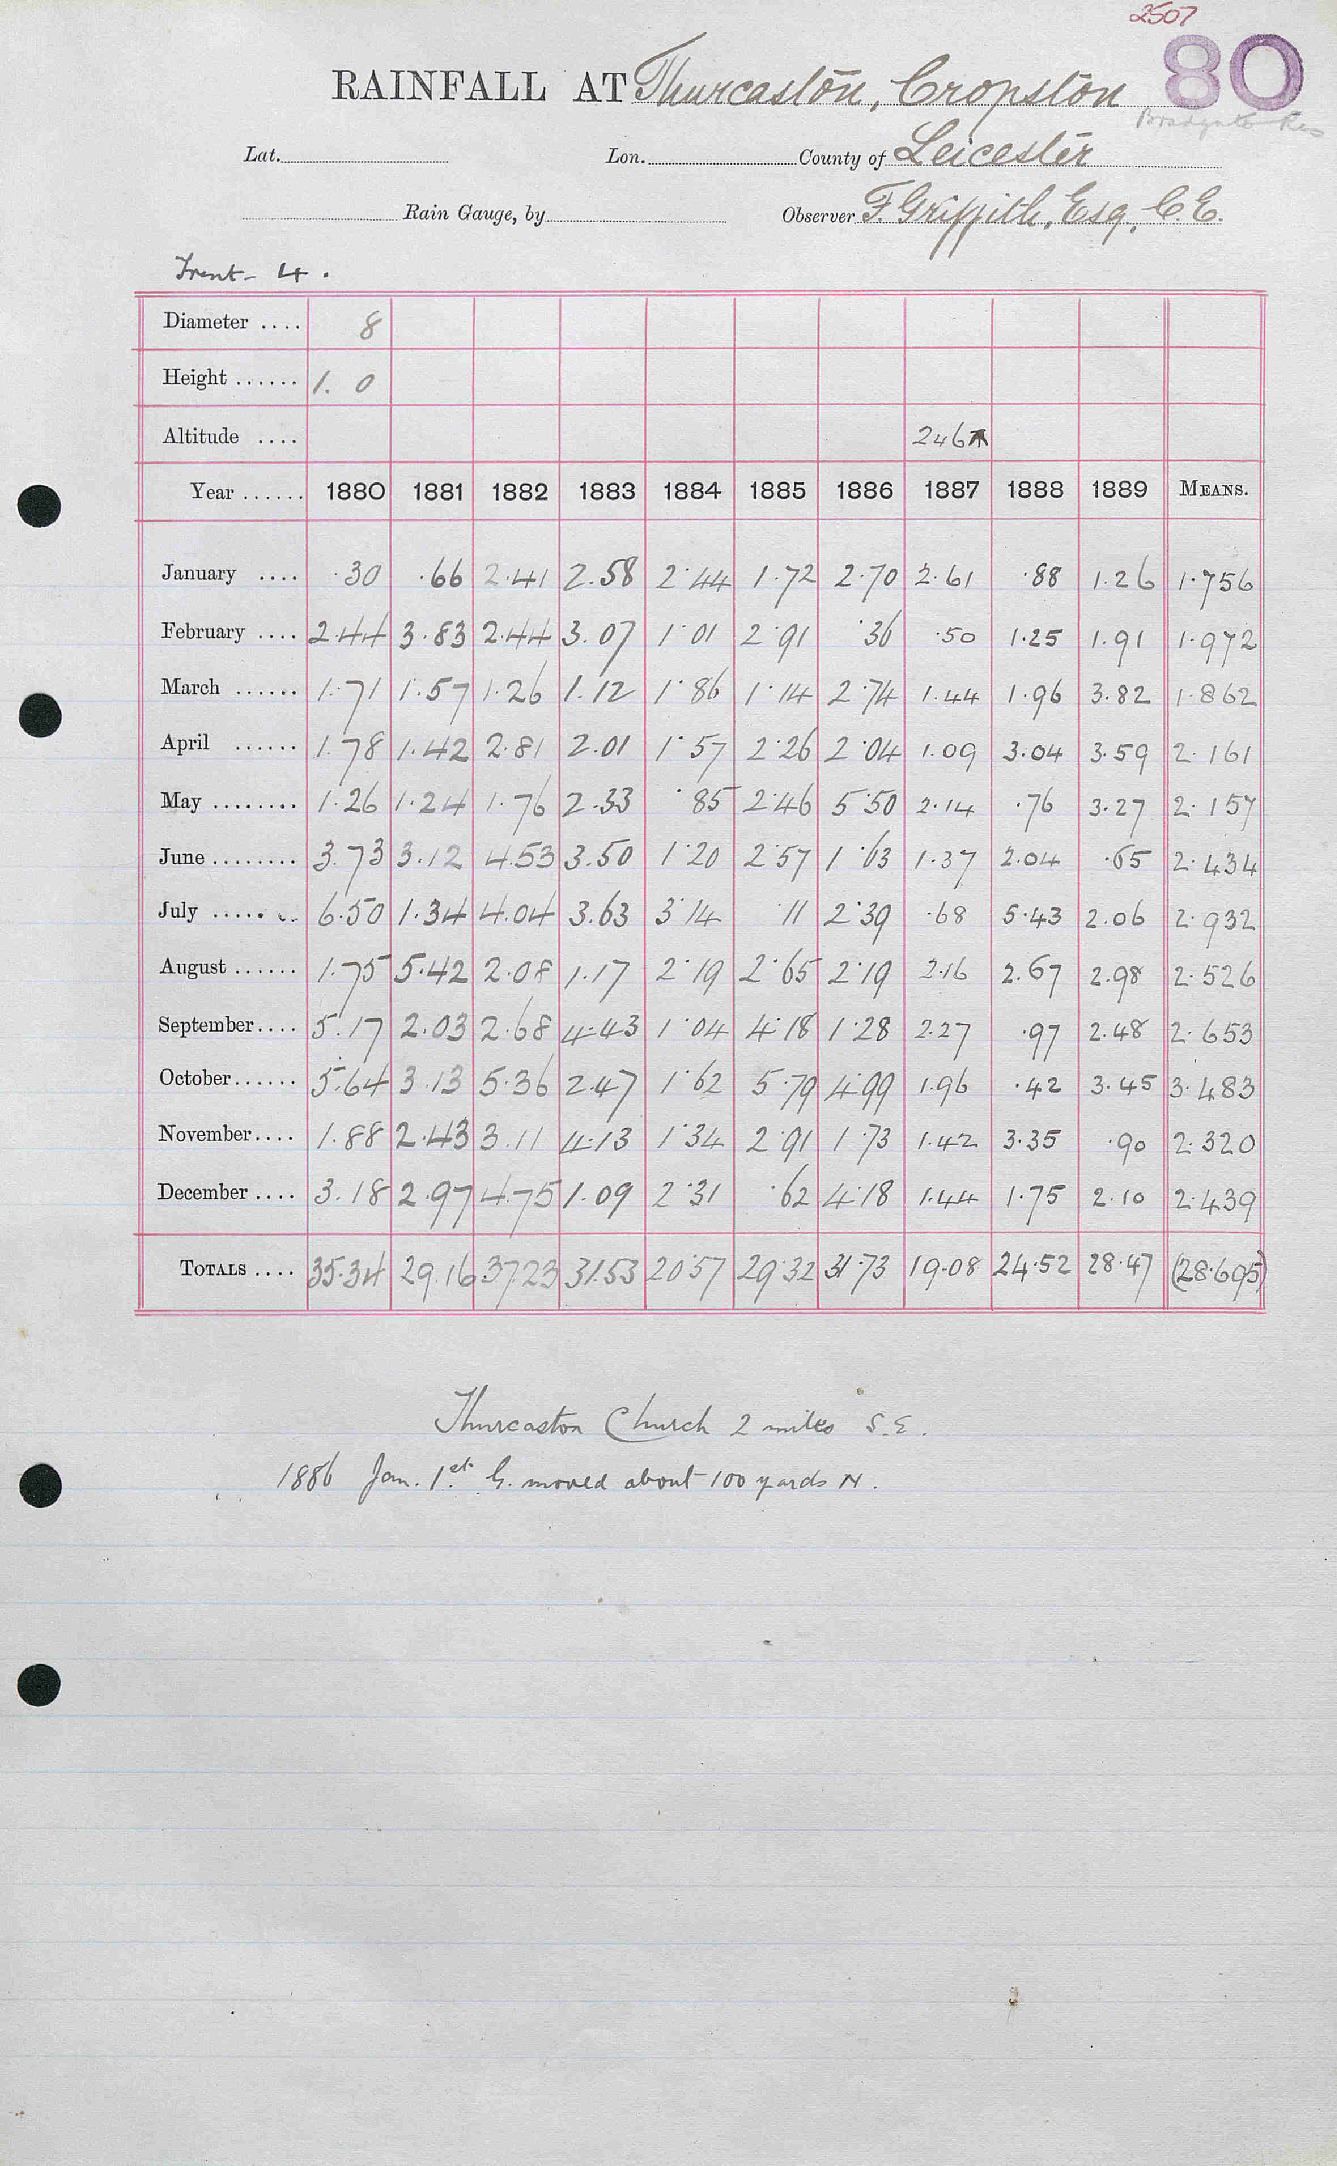 2507
80
RAINFALL AT Thurcaston, Cropston
Bradgate Res
Lat. Lon. County of Leicester
Rain Gauge, by Observer F. Griffith, Esq, C.E.
Trent - 4.
Diameter .... 8
Height ...... 1. 0
Altitude .... 246
Year ...... 1880 1881 1882 1883 1884 1885 1886 1887 1888 1889 MEANS.
January .... ·30 ·66 2·41 2.58 2·44 1·72 2·70 2·61 ·88 1.26 1·756
February .... 2·44 3·83 2·44 3.07 1·01 2·91 ·36 ·50 1·25 1.91 1·972
March ...... 1·71 1·57 1·26 1.12 1·86 1·14 2·74 1·44 1·96 3.82 1·862
April ...... 1.78 1·42 2·81 2.01 1·57 2·26 2·04 1.09 3.04 3.59 2·161
May ........ 1·26 1·24 1·76 2·33 ·85 2·46 5·50 2·14 ·76 3.27 2·157
June ........ 3.73 3·12 4.53 3.50 1·20 2·57 1·63 1·37 2.04 ·65 2·434
July ...... 6·50 1·34 4.04 3.63 3·14 ·11 2·39 ·68 5·43 2.06 2·932
August ...... 1.75 5·42 2·08 1.17 2·19 2·65 2·19 2·16 2.67 2.98 2·526
September.... 5.17 2.03 2·68 4·43 1·04 4·18 1·28 2.27 ·97 2.48 2·653
October...... 5.64 3·13 5·36 2·47 1·62 5·79 4·99 1·96 ·42 3.45 3·483
November.... 1.88 2·43 3.11 4·13 1·34 2·91 1·73 1·42 3·35 ·90 2·320
December .... 3.18 2·97 4.75 1·09 2·31 ·62 4·18 1·44 1·75 2·10 2·439
TOTALS .... 35·34 29.16 37.23 31.53 20·57 29·32 31·73 19·08 24·52 28·47 (28·695)
Thurcaston Church 2 miles S.E.
1886 Jan. 1st. G. moved about 100 yards N.